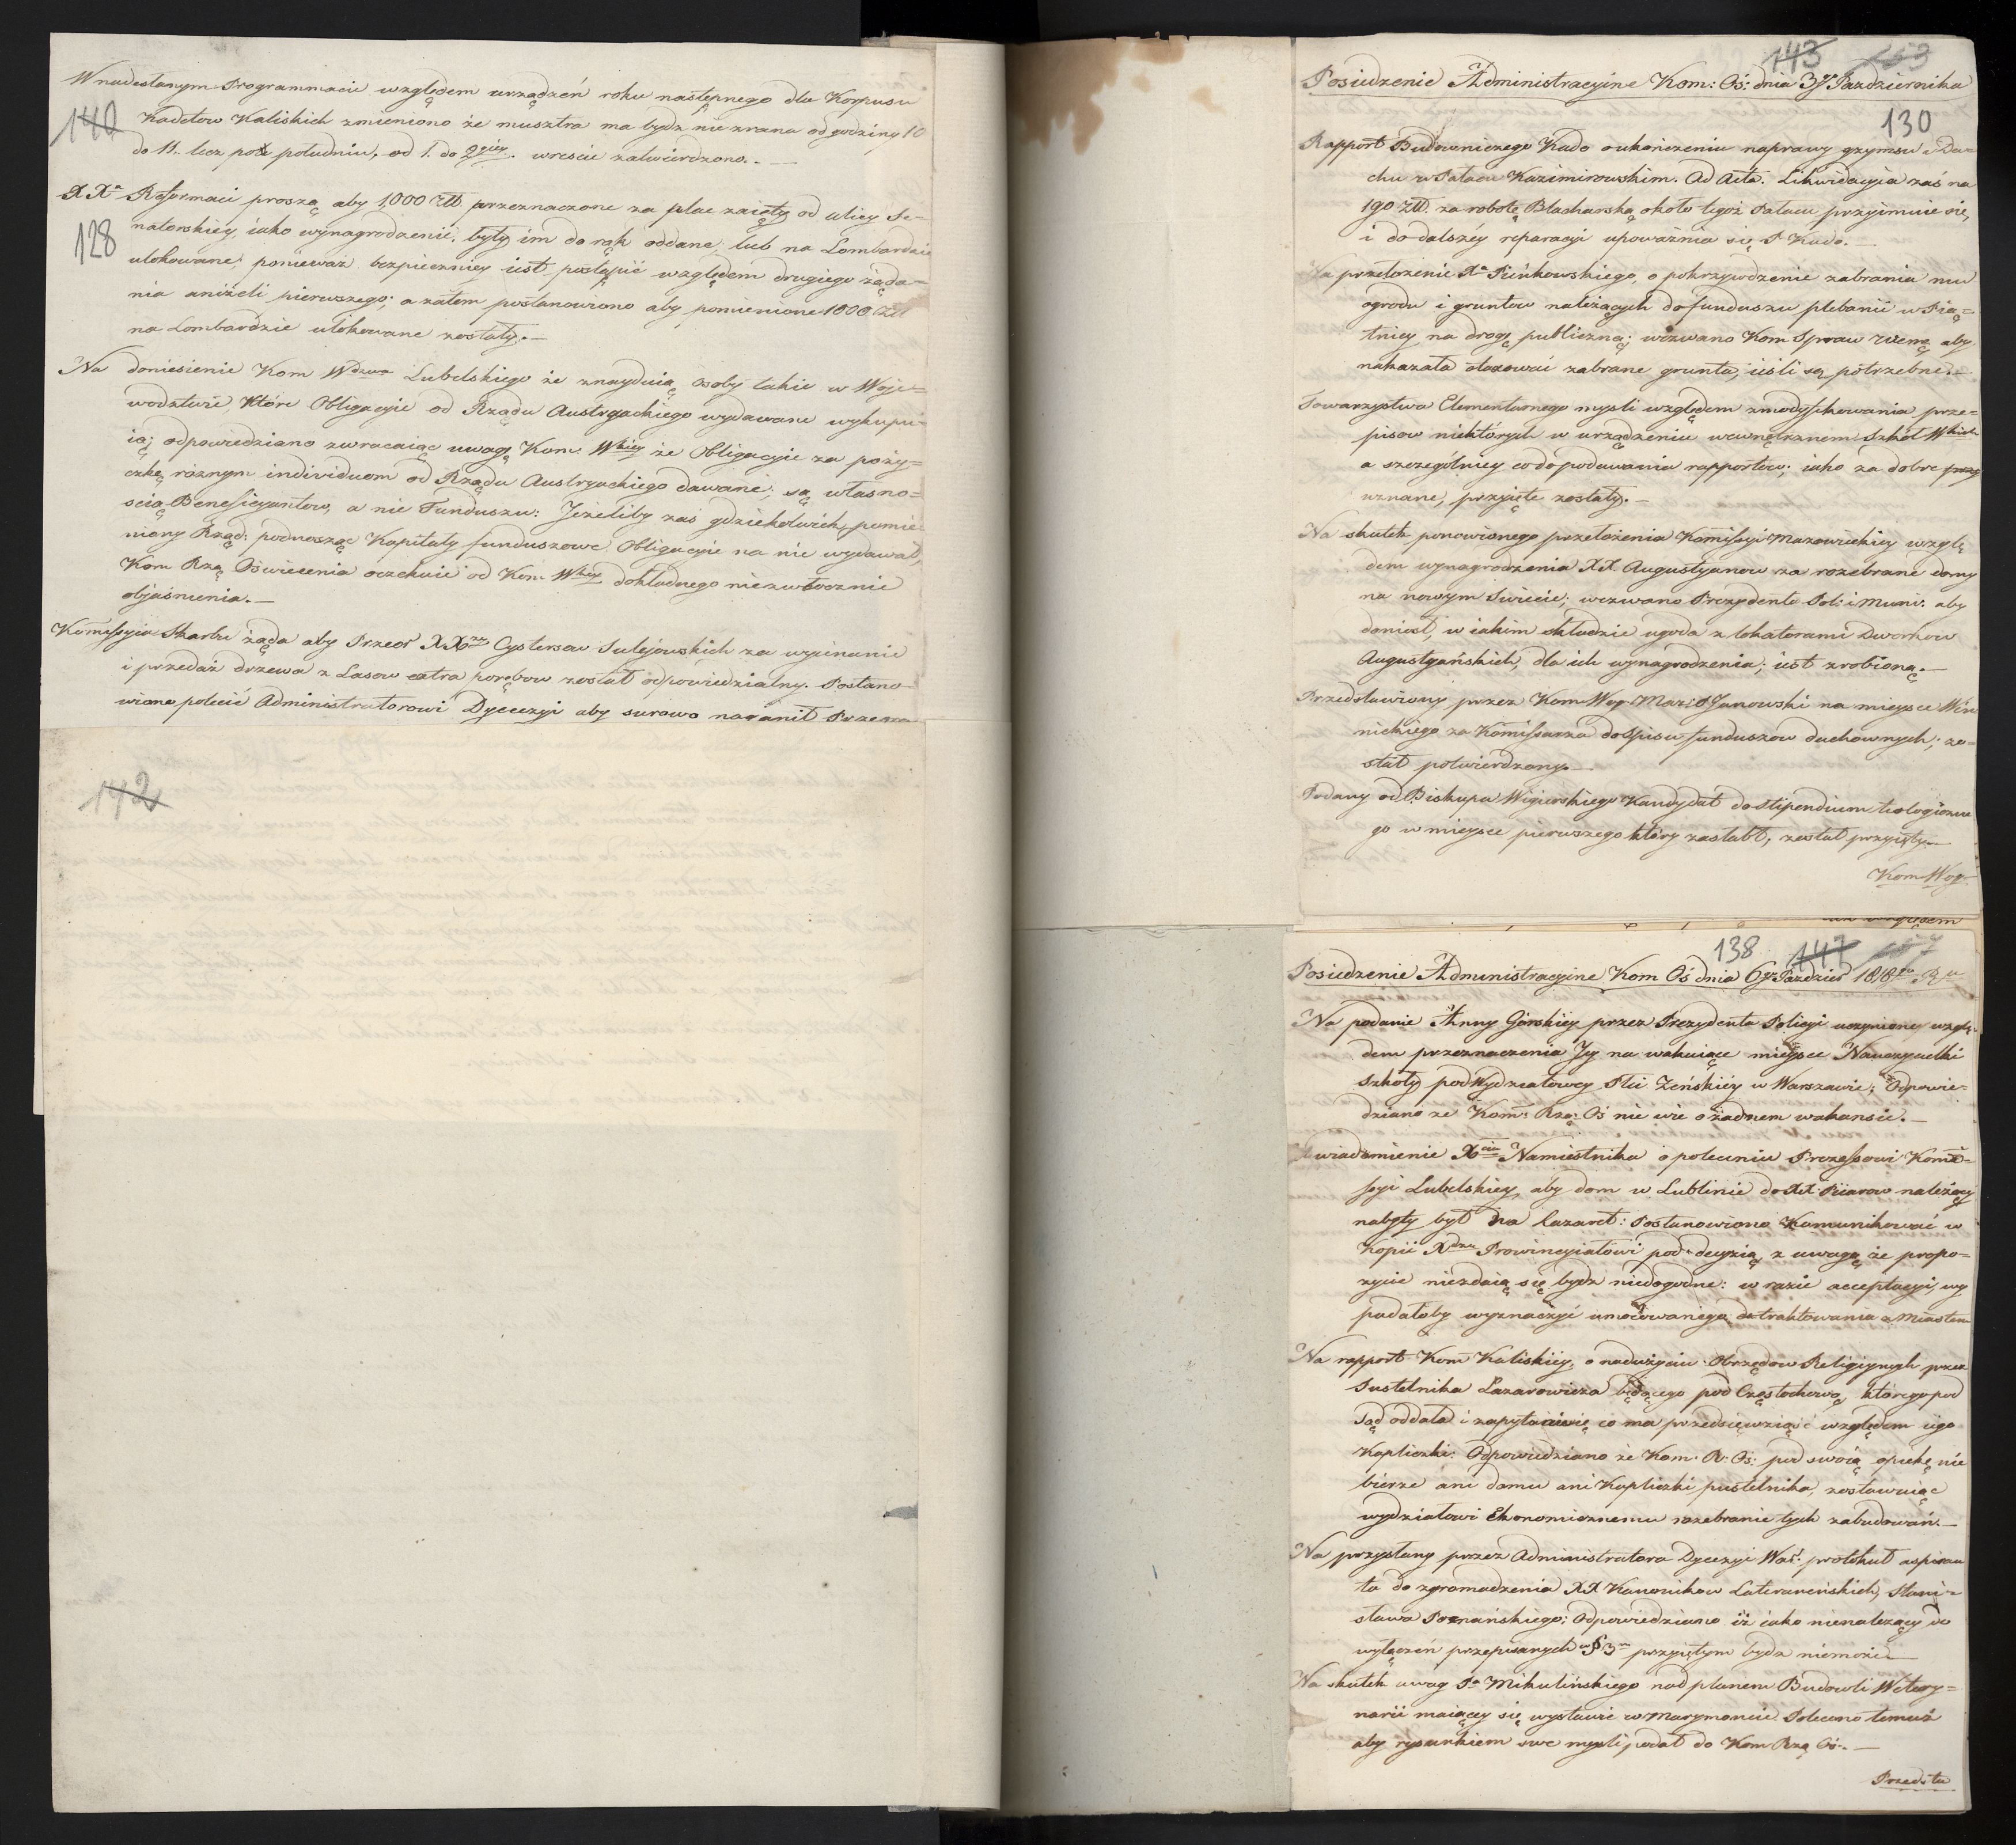 W nadesłanym Programmacie względem urządzeń roku następnego dla Korpusu
140
Kadetow Kaliskich zmieniono że musztra ma bydz nie zrana od godziny 10
do 11. lecz po południu, od 1. do 2giey. wreście zatwierdzono. —
XXa Reformaci proszą aby 1,000 Złł przeznaczone za plac zaięty od ulicy Se-
128
natorskiey, iako wynagrodzenie, były im do rąk oddane, lub na Lombardzie
ulokowane; ponieważ bezpieczniey iest postąpić względem drugiego żąda=
nia aniżeli pierwszego; a zatem postanowiono aby pomienione 1000 Złł
na Lombardzie ulokowane zostały. —
Na doniesienie Kom Wdzwa Lubelskiego że znayduią osoby takie w Woje=
wodztwie, które Obligacyie od Rządu Austryackiego wydawane wykupu=
ią; odpowiedziano zwracaiąc uwagę Kom: Wkiey że Obligacyie za poży=
czkę róznym individuom od Rządu Austryackiego dawane; są własno=
scią Beneficyantow, a nie Funduszu: Jeżeliby zaś gdziekolwiek, pomie=
niony Rząd: podnosząc Kapitały funduszowe Obligacyie na nie wydawał,
Kom Rzą Oświecenia oczekuie od Kom Wkiey dokładnego niezwłocznie
objaśnienia. —
Kommissyia Skarbu żąda aby Przeor XXow Cystersow Sulejowskich za wycinanie
i przedaż drzewa z Lasow extra porębow został odpowiedzialny. Postano-
wiono polecić Administratorowi Dyecezyi aby surowo naganił Przeora
142
143
Posiedzenie Administracyine Kom: Oś: dnia 3go Pazdziernika
130
Rapport Budowniczego Kado o ukończeniu naprawy gzymsu i Da=
chu w Pałacu Kazimirowskim. Ad Acta. Likwidacyia zaś na
190 Złł. za robotę Blacharską około tegoż Pałacu przyimuie się,
i do dalszéy reparacyi upoważnia się P Kado. —
Na przełożenie Xa Pieńkowskiego, o pokrzywdzenie zabrania mu
ogrodu i gruntow należących do funduszu plebanii w Pią=
tnicy na drogę publiczną; wezwano Kom Spraw Wewnę aby
nakazała otaxować zabrane grunta, ieśli są potrzebne. —
Towarzystwa Elementarnego mysli względem zmodyfikowania prze=
pisow niektórych w urządzeniu wewnętrznem Szkół Wkich
a szczególniey co do podawania rapportow; iako za dobre
uznane, przyięte zostały. —
Na skutek ponowionego przełożenia Kommissyi Mazowieckiey wzglę
dem wynagrodzenia XX Augustyanow za rozebrane domy
na nowym Swiecie; wezwano Prezydenta Pol: i Muni: aby
doniosł, w iakim składzie ugoda z lokatorami Dworkow
Augustyańskich, dla ich wynagrodzenia, iest zrobioną. —
Przedstawiony przez Kom Woy Maz: P Janowski na mieysce Win
nickiego za Kommissarza do spisu funduszow duchownych; zo=
stał potwierdzony. —
Podany od Biskupa Wigierskiego Kandydat do stipendium teologiczne
go w mieysce pierwszego który zasłabł, został przyięty. —
Kom Woy
138 147
Posiedzenie Administracyine Kom Oś dnia 6go Pazdzier 1818go Ru
Na podanie Anny Górskiéy przez Prezydenta Policyi uczynione wzglę-
dem przeznaczenia Jey na wakuiące mieysce Nauczycielki
Szkoły podWydziałowey Płci Zeńskiéy w Warszawie; Odpowie=
dziano ze Kom: Rzą: Oś nie wie o żadnem wakansie. —
Uwiadomienie Xcia Namiestnika o poleceniu Prezessowi Kommi=
ssyi Lubelskiey, aby dom w Lublinie do XX Piiarow należący
nabyty był na lazaret: Postanowiono Kommunikować w
Kopii Xdzu Prowincyiałowi pod decyzią, z uwagą że propo=
zycie niezdaią się bydz niedogodne: w razie acceptacyi, wy
padałoby wyznaczyć umocowanego do traktowania z Miastem
Na rapport Kom Kaliskiéy, o nadużyciu Obrzędow Religiynych przez
Pustelnika Lazarowicza będącego pod Częstochową, którego pod
Sąd oddała i zapytanie co ma przedsięwziąść względem iego
Kapliczki: Odpowiedziano że Kom: R: Oś: pod swoią opiekę nie
bierze ani domu ani Kapliczki pustelnika, zostawuiąc
wydziałowi Ekonomicznemu rozebranie tych zabudowań. —
Na przysłany przez Administratora Dyecezyi War: protokuł aspiran
ta do zgromadzenia XX Kanonikow Laterańeńskich, Stani=
sława Poznańskiego; Odpowiedziano iż iako nienalezący do
wyłączeń przepisanych w § 3m przyiętym bydz niemoże —
Na skutek uwag Pa Mikulińskiego nad planem Budowli Wetery=
narii maiącey się wystawić w Marymoncie Polecono temuż
aby rysunkiem swe mysli podał do Kom Rzą Oś. —
Przedsta